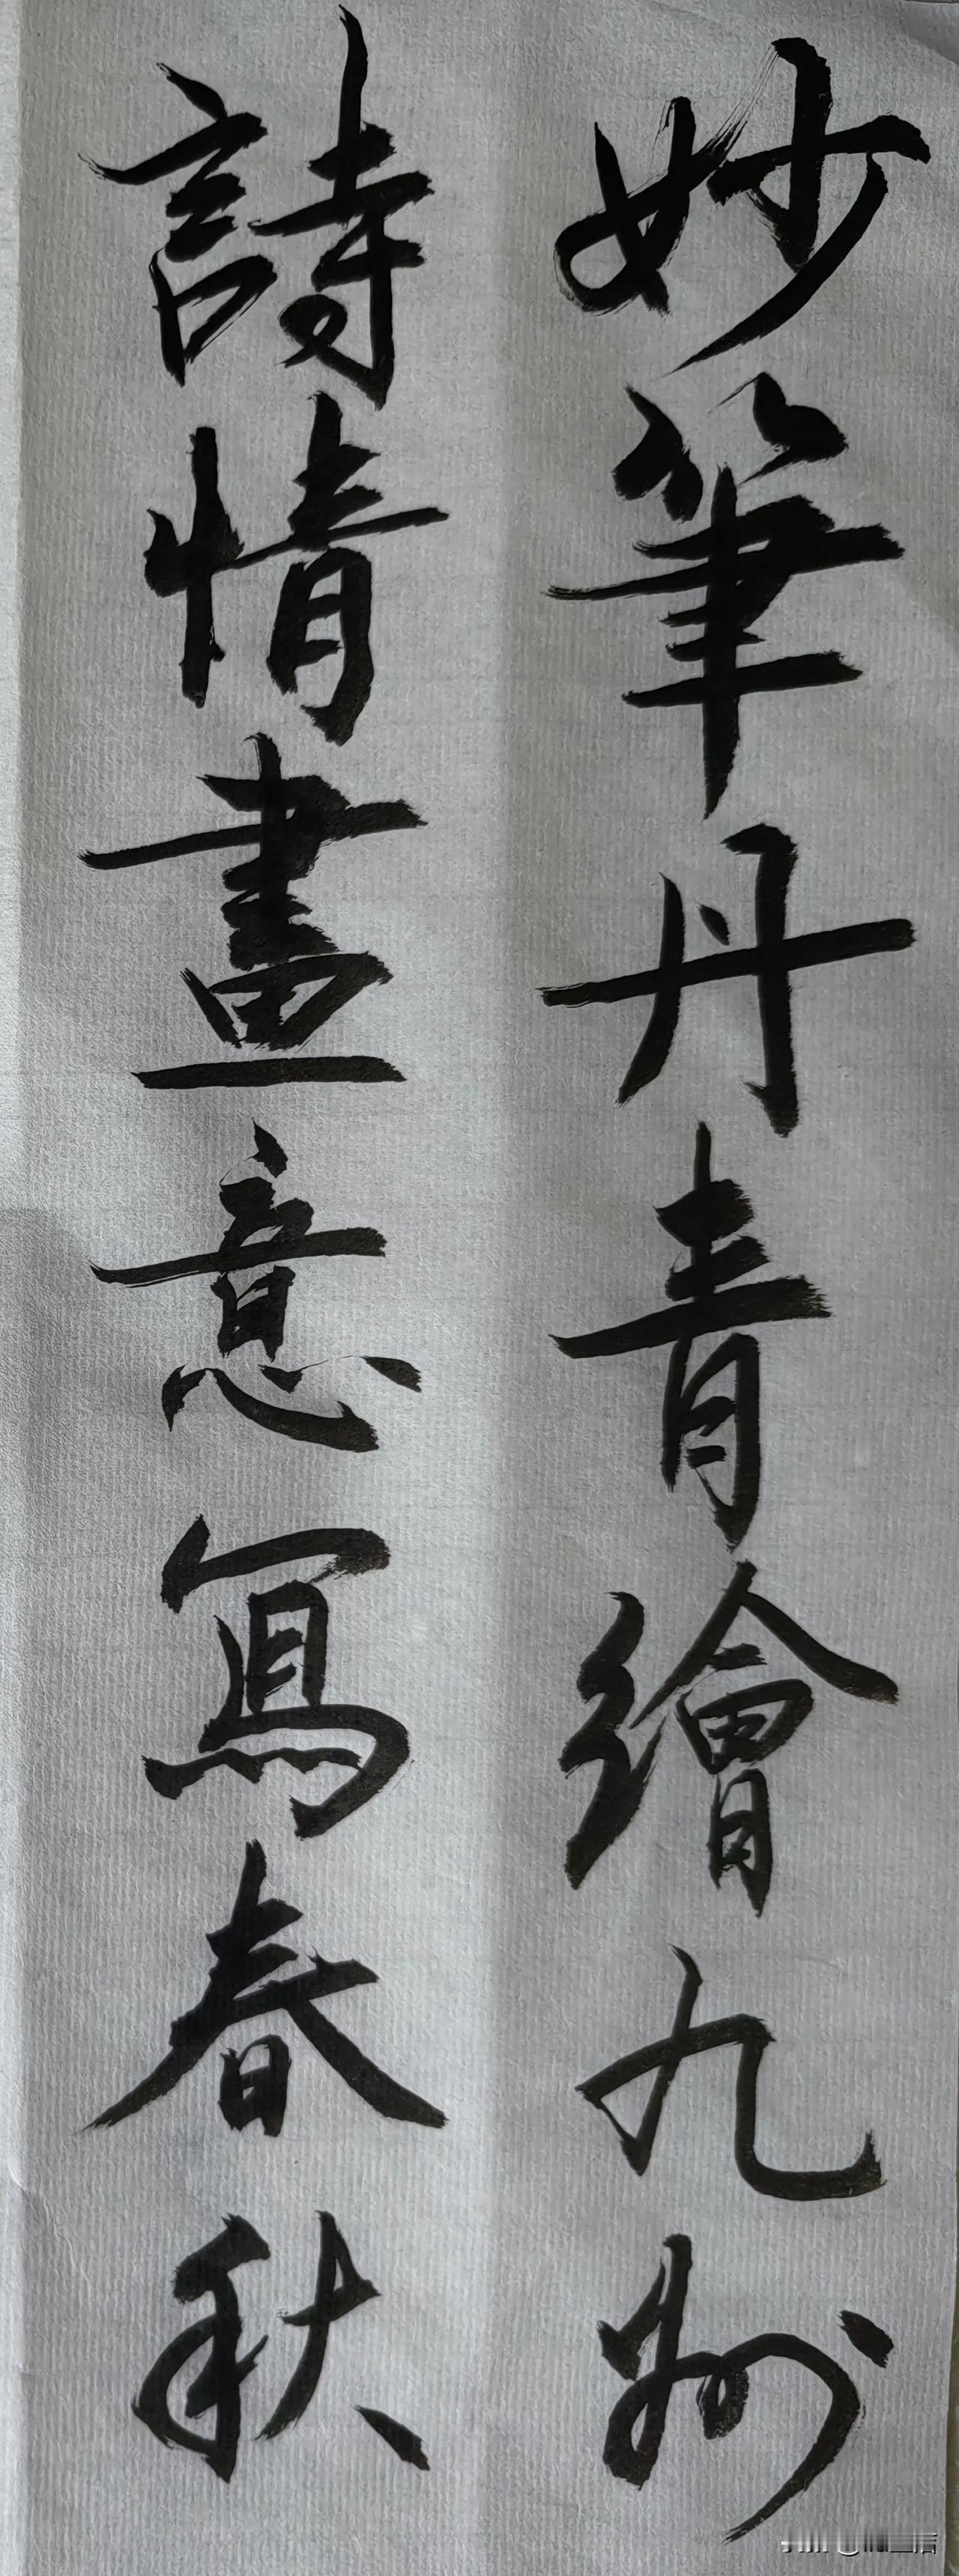 妙筆丹青繪九州
詩情畫意寫春秋